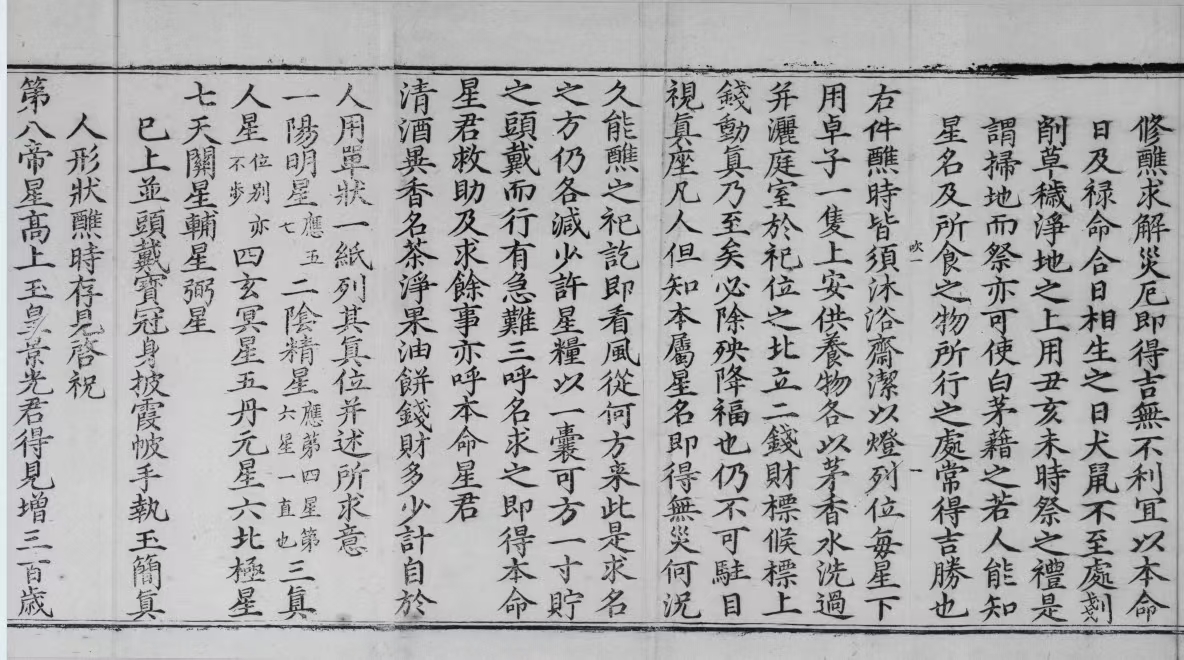 修醮求解災厄即得吉無不利冝以本命
日及禄命合日相生之日犬鼠不至處剗
削草穢淨地之上用丑亥未時祭之禮是
謂掃地而祭亦可使白茅藉之若人能知
星名及所食之物所行之處常得吉勝也
吹一 一
右件醮時皆須沐浴齋潔以燈列位每星下
用卓子一隻上安供養物各以茅香水洗過
并灑庭室於祀位之北立二錢財標候標上
錢動真乃至矣必除殃降福也仍不可駐目
視真座凡人但知本屬星名即得無災何況
久能醮之祀訖即看風從何方来此是求名
之方仍各減少許星糧以一囊可方一寸貯
之頭戴而行有急難三呼名求之即得本命
星君救助及求餘事亦呼本命星君
清酒異香名茶淨果油餅錢財多少計自於
人用單狀一紙列其真位并述所求意
一陽明星應五七二陰精星應第四星第六星一直也三真
人星位别亦不步四玄冥星五丹元星六北極星
七天關星輔星弼星
巳上並頭戴寶冠身披霞帔手執玉簡真
人形狀醮時存見啓祝
第八帝星髙上玉皇景光君得見增三百歳